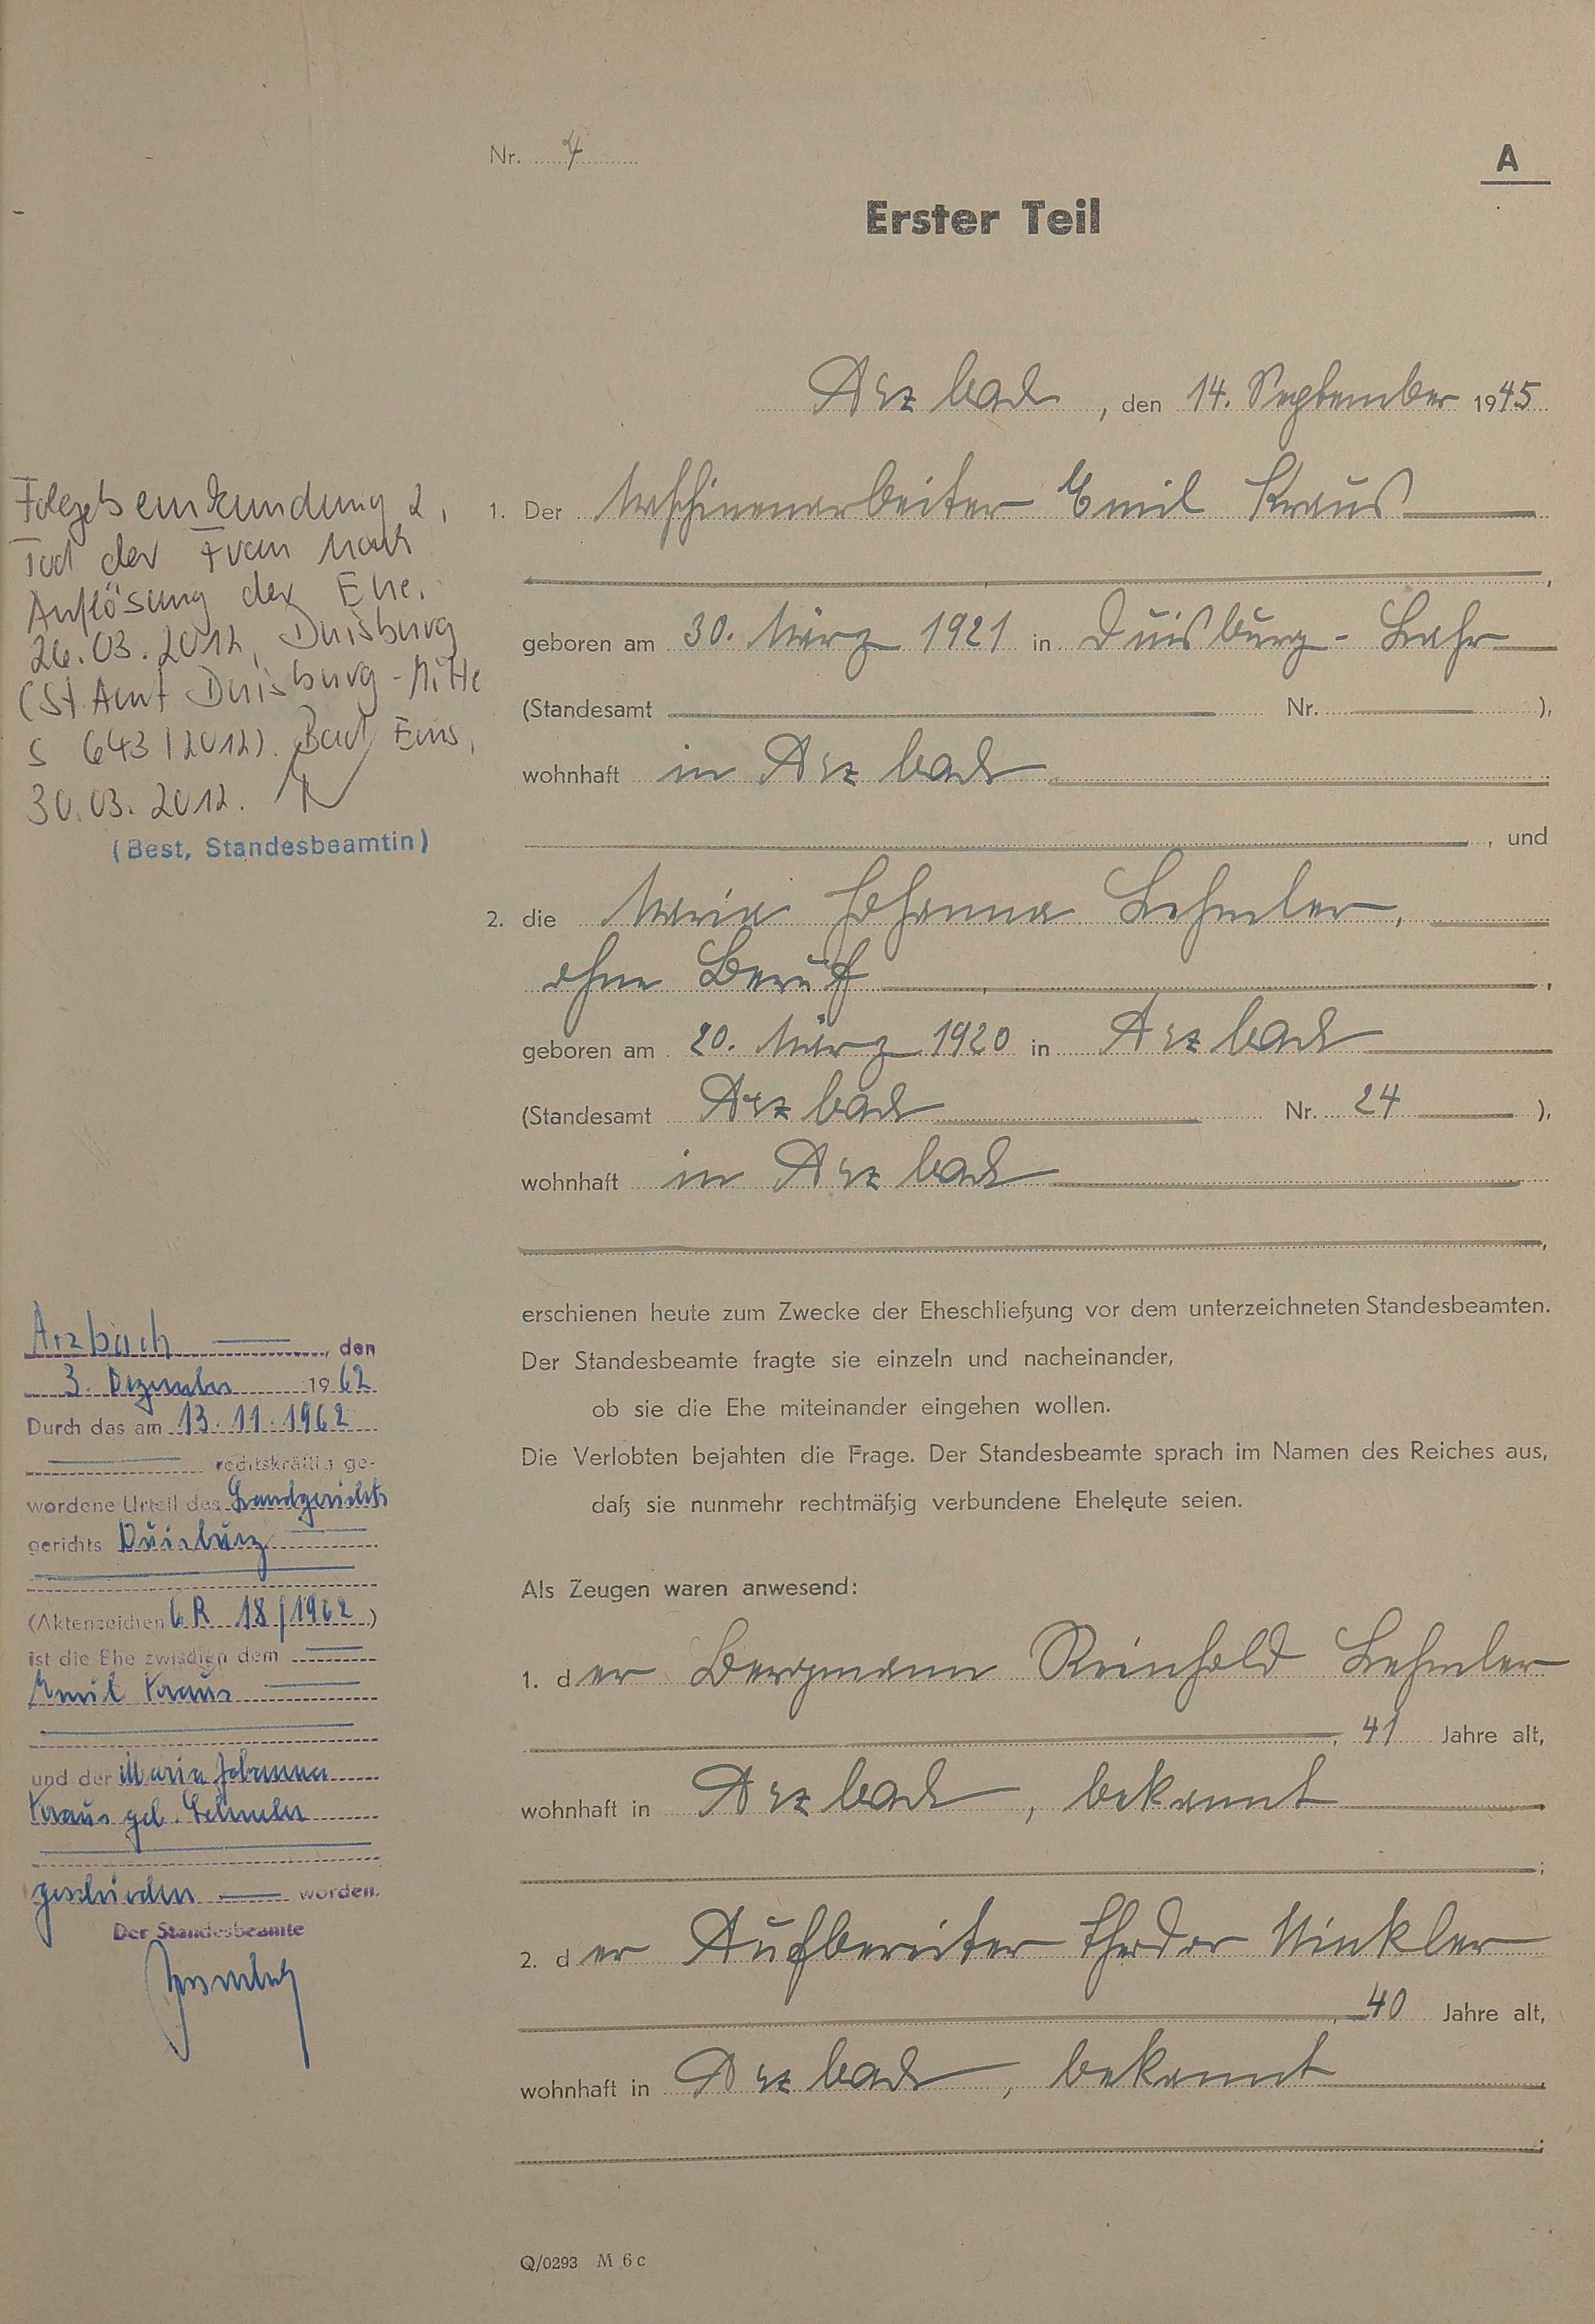 Nr. 4
A
Erster Teil
Arzbach, den 14. September 1945
1. Der Maschinenarbeiter Emil Kraus
geboren am 30. März 1921 in Duisburg-
(Standesamt Nr. ),
wohnhaft in Arzbach
, und
2. die Maria Johanna Lehmler,
ohne Beruf ,
geboren am 20. März 1920 in Arzbach
(Standesamt Arzbach Nr. 24 ),
wohnhaft in Arzbach
erschienen heute zum Zwecke der Eheschließung vor dem unterzeichneten Standesbeamten.
Der Standesbeamte fragte sie einzeln und nacheinander,
ob sie die Ehe miteinander eingehen wollen.
Die Verlobten bejahten die Frage. Der Standesbeamte sprach im Namen des Reiches aus,
daß sie nunmehr rechtmäßig verbundene Eheleute seien.
Als Zeugen waren anwesend:
1. der Bergmann Reinhold Lehmler
, 41 Jahre alt,
wohnhaft in Arzbach, bekannt
;
2. der Aufbereiter Theodor Winkler
, 40 Jahre alt,
wohnhaft in Arzbach, bekannt
;
Q/0293 M 6 c
Folgebeurkundung 2,
Tod der Frau nach
Auflösung der Ehe.
26.03.2012, Duisburg
(StAmt Duisburg-Mitte
S 643/2012). Bad Ems,
30.03.2012.
(Best, Standesbeamtin)
Arzbach, den
3. Dezember 1962
Durch das am 13.11.1962
rechtskräftig ge-
wordene Urteil des Landgerichts
gerichts Duisburg
(Aktenzeichen 6 R 18/1962)
ist die Ehe zwischen dem
Emil Kraus
und der Maria Johanna
Kraus geb. Lehmler
geschieden worden.
Der Standesbeamte